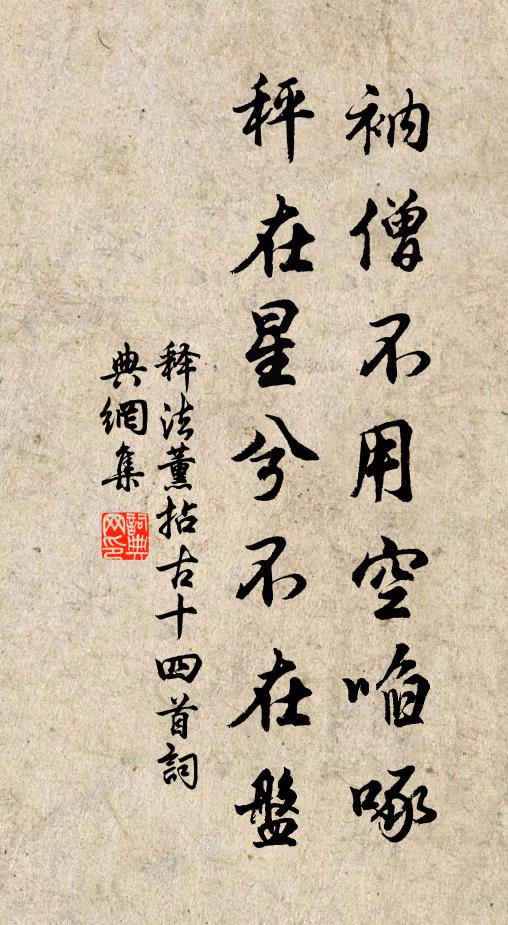 衲僧不用空啗啄
秤在星兮不在盤
释法薰拈古十四首詞
典網集
詞典网印